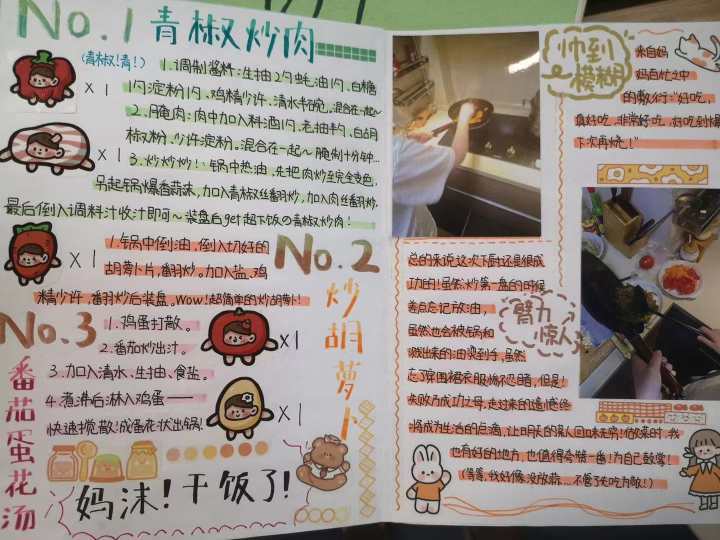 No.1 青椒炒肉
(青椒!青!)
×1
1.调制酱料:生抽2勺蚝油1勺、白糖
1勺淀粉1勺、鸡精少许、清水半碗,混合在一起~
2.腌肉:肉中加入料酒1勺、老抽半勺、白胡
椒粉、少许淀粉。混合在一起~腌制十分钟...
×1
3.炒炒炒!:锅中热油,先把肉炒至完全变色,
另起锅爆香蒜末,加入青椒丝翻炒,加入肉丝翻炒,
最后倒入调料汁收汁即可~装盘后get超下饭の青椒炒肉!
×1
1.锅中倒油,倒入切好的
胡萝卜片,翻炒。加入盐、鸡
精少许,番炒后装盘。Wow!超简单的炒胡萝卜!
No.2
炒胡萝卜
No.3
番茄蛋花汤
1.鸡蛋打散。
2.番茄炒出汁。
3.加入清水、生抽、食盐。
4.煮沸后淋入鸡蛋——
快速搅散!成蛋花状出锅!
×1
×1
妈沫!干饭了!
帅到
模糊
来自妈
妈百忙之中
的敷衍:"好吃,
真好吃,非常好吃,好吃到爆
下次再烧!"
总的来说,这次下厨还是很成
功的!虽然炒第一盘的时候
差点忘记放油,
虽然也会被锅和
溅出来的油烫到手,虽然
忘了穿围裙衣服惨不忍睹,但是!
失败乃成功之母,走过来的遗憾终
将成为生活的点滴,让明天的家人回味无穷!做菜时,我
也有好的地方,也值得夸赞一番!为自己鼓掌!
(等等,我好像没放蒜...不管了先吃为敬!)
臂力
惊人